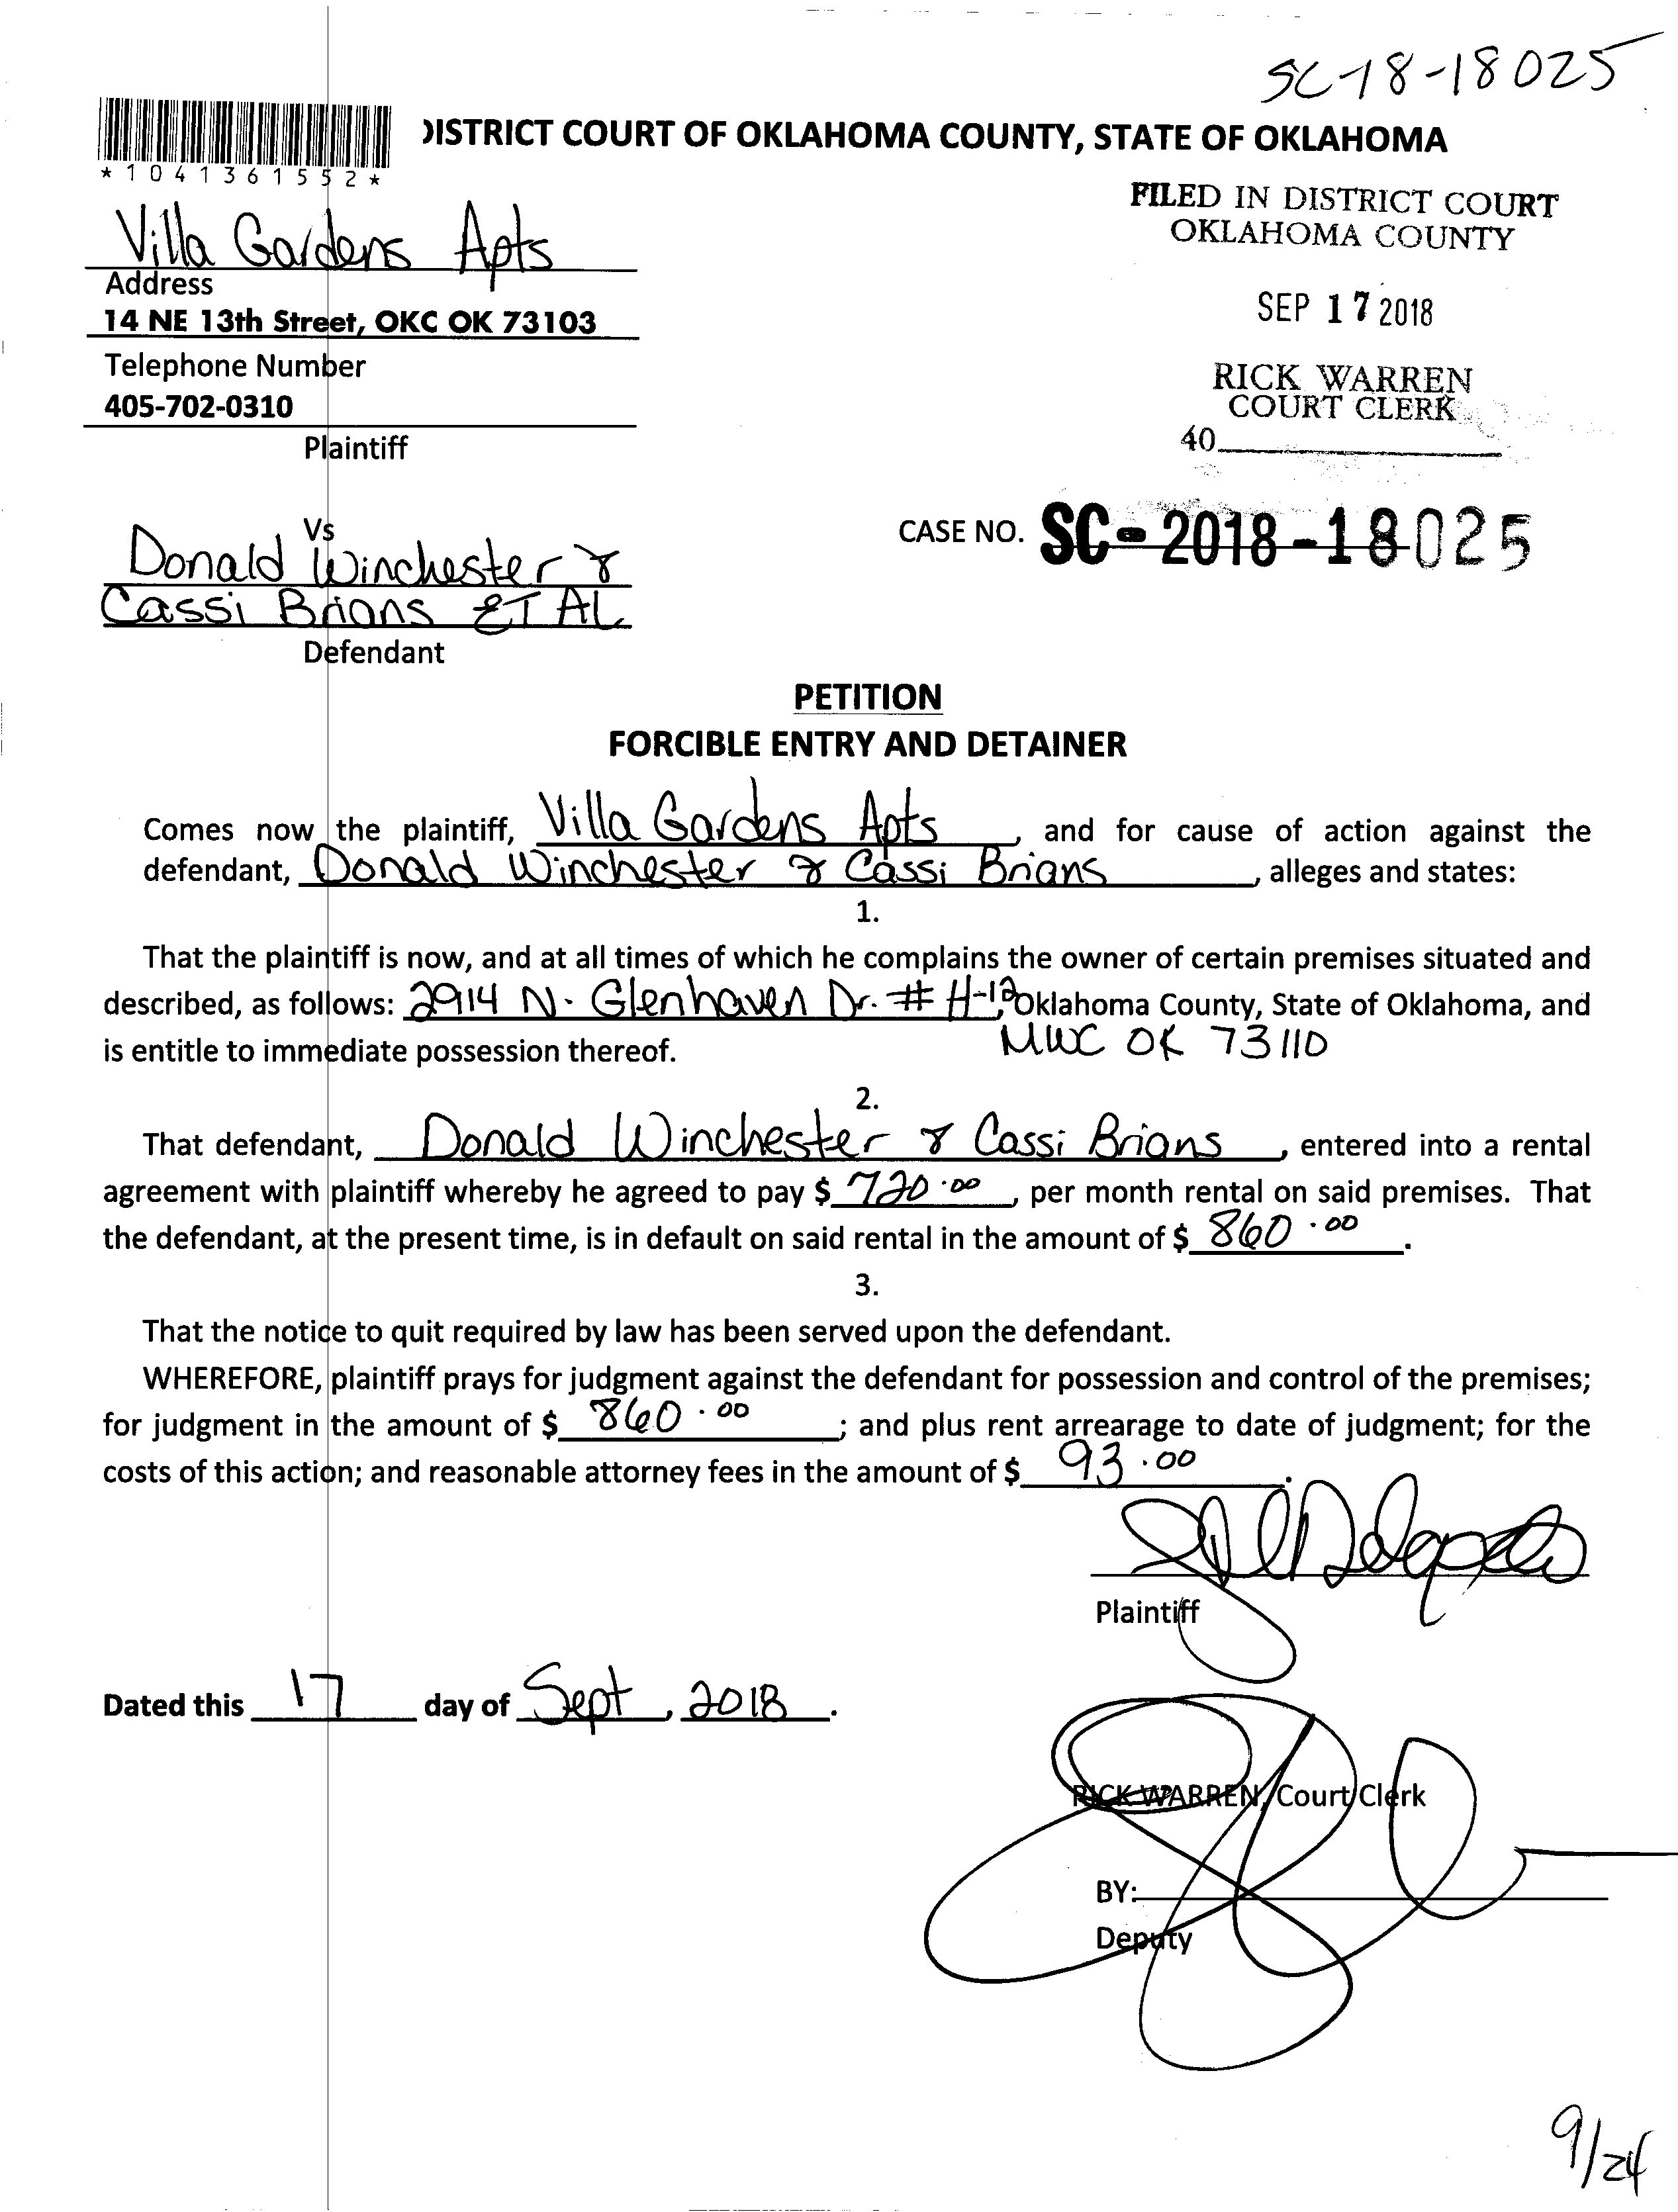 SC-18-18025
DISTRICT COURT OF OKLAHOMA COUNTY, STATE OF OKLAHOMA
*1041361552*
FILED IN DISTRICT COURT
OKLAHOMA COUNTY
Villa Gardens Apts
Address
14 NE 13th Street, OKC OK 73103
SEP 17 2018
Telephone Number
RICK WARREN
COURT CLERK
405-702-0310
40
Plaintiff
Vs
CASE NO. SC-2018-18025
Donald Winchester &
Cassi Brians ET AL
Defendant
PETITION
FORCIBLE ENTRY AND DETAINER
Comes now the plaintiff, Villa Gardens Apts, and for cause of action against the
defendant, Donald Winchester & Cassi Brians, alleges and states:
1.
That the plaintiff is now, and at all times of which he complains the owner of certain premises situated and
described, as follows: 2914 N. Glenhaven Dr. # H-12, Oklahoma County, State of Oklahoma, and
is entitle to immediate possession thereof. MWC OK 73110
2.
That defendant, Donald Winchester & Cassi Brians, entered into a rental
agreement with plaintiff whereby he agreed to pay $ 720.00, per month rental on said premises. That
the defendant, at the present time, is in default on said rental in the amount of $ 860.00.
3.
That the notice to quit required by law has been served upon the defendant.
WHEREFORE, plaintiff prays for judgment against the defendant for possession and control of the premises;
for judgment in the amount of $ 860.00; and plus rent arrearage to date of judgment; for the
costs of this action; and reasonable attorney fees in the amount of $ 93.00.
Plaintiff
Dated this 17 day of Sept, 2018.
RICK WARREN, Court Clerk
BY:
Deputy
9/24